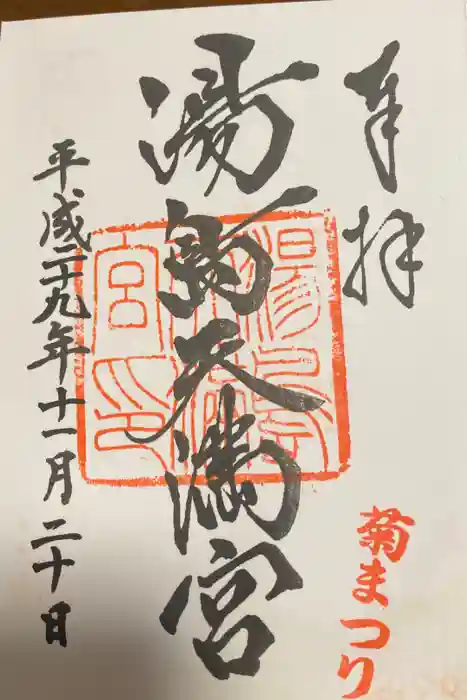 奉拝
菊まつり
湯島天満宮
平成二十九年十一月二十日